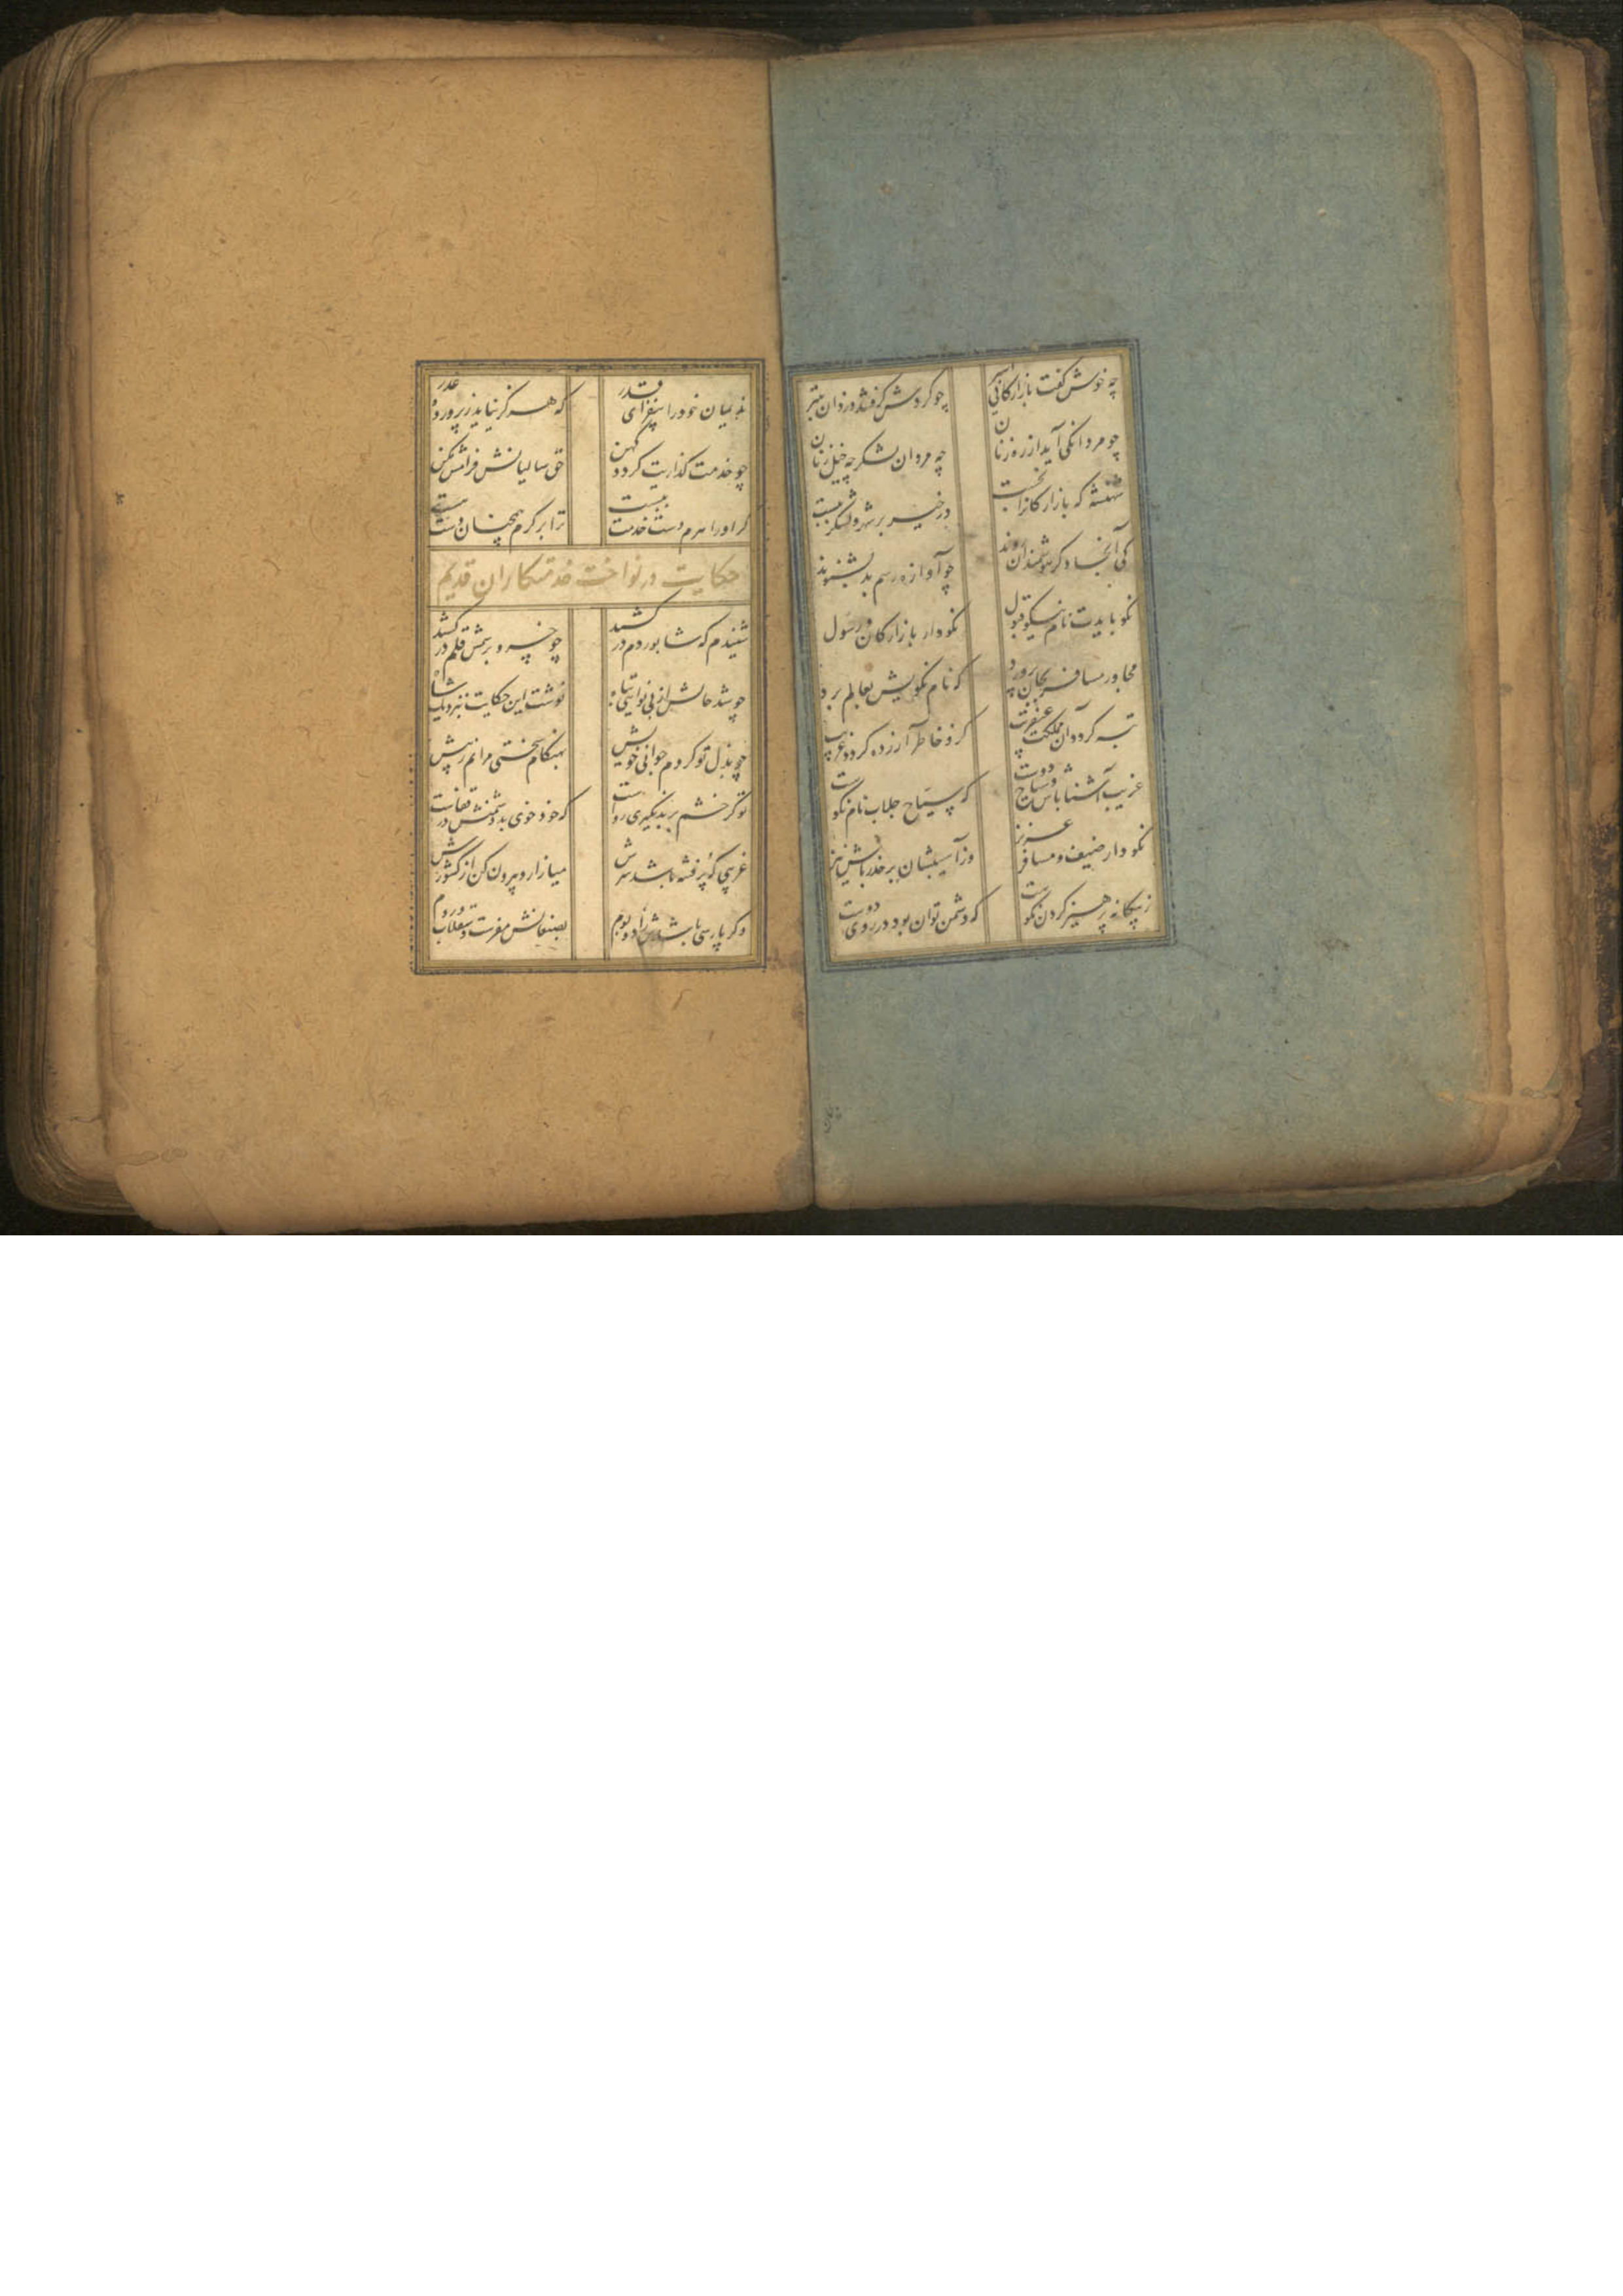 چه خوش گفت بازارکانی اسیر چو کردش گرفتند دزدان بتیر
چو مردانکی آید از ره زنان چه مردان لشکر چه خیل زنان
شهنشه که بازارکانرا بخست در خیر بر شهر و لشکر ببست
کی آنجا دکر هوشمندان روند چو آوازه رسم بد بشنوند
نکو بایدت نام نیکو قبول نکو دار بازارکان و رسول
مجاور مسافر بجان پرورد که نام نکویش بعالم برد
تبه کردد آن مملکت عنقریب کزو خاطر آزرده کردد غریب
غریب آشنا باش و سیاح دوست که سیاح جلاب نام نکوست
نکو دار ضیف و مسافر عزیز وز آسیبشان بر حذر باش نیز
ز بیکانه پرهیز کردن نکوست که دشمن توان بود در روی دوست
ندیمان خود را بیفزای قدر که هرکز نیاید ز پرورده غدر
چو خدمت کذاریت کردد کهن حق سالیانش فرامش مکن
کر او را هرم دست خدمت ببست ترا بر کرم همچنان دست هست
حکایت در نواخت خدمتکاران قدیم
شنیدم که شابور دم در کشید چو خسرو برسمش قلم در کشید
چو شد حالش از بی نوایی تباه نوشت این حکایت بنزدیک شاه
چو بذل تو کردم جوانی خویش بهنکام سختی مرانم ز پیش
تو کر خشم بر بد نکیری رواست که خود خوی بد دشمنش در قفاست
غریبی که پر فتنه باشد سرش میازار و بیرون کن از کشورش
وکر پارسی باشدش زاد و بوم بصنعانش مفرست و سقلاب و روم